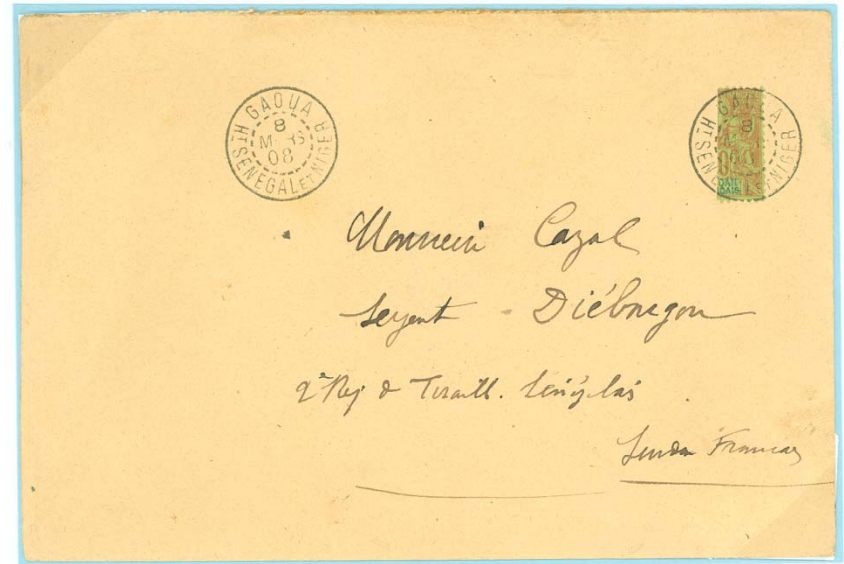 GAOUA
8
M RS
08
HT SENEGAL ET NIGER
GAOUA
8
HT SENE ET NIGER
Monsieur Cazal
Sergent Diébougou
2e Reg de Tiraill. Sénégalais
Soudan Français